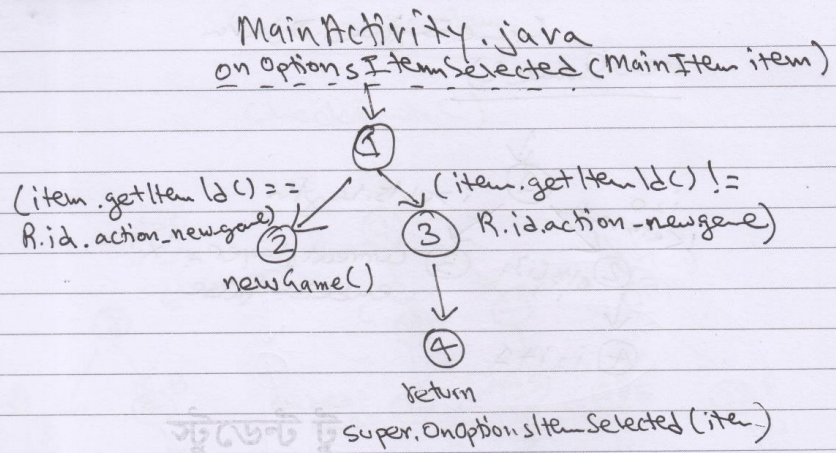 MainActivity.java
onOptionsItemSelected(MainItem item)
1
(item.getItemId() ==
R.id.action_newgame)
(item.getItemId() !=
R.id.action_newgame)
2
3
newGame()
4
return
super.OnOptionsItemSelected(item)